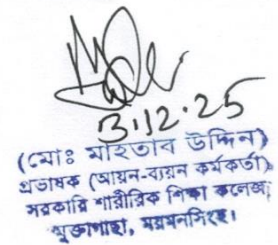 3.12.25
(মোঃ মাহতাব উদ্দিন)
প্রভাষক (আয়ন-ব্যয়ন কর্মকর্তা)
সরকারি শারীরিক শিক্ষা কলেজ,
মুক্তাগাছা, ময়মনসিংহ।